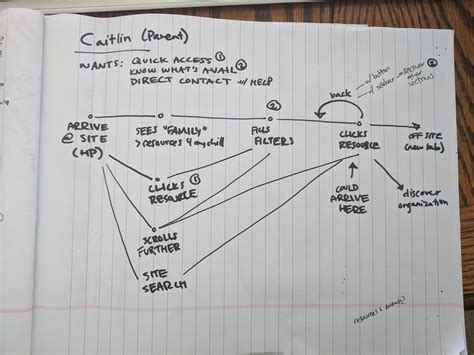 Caitlin (Parent)
WANTS: QUICK ACCESS ①
KNOW WHAT'S AVAIL ②
DIRECT CONTACT w/ HELP
w/ button
w/ sidebar → discover
other
sections
②
back
②
ARRIVE
@ SITE
(HP)
SEES "FAMILY"
> resources 4 my child
FILLS
FILTERS
CLICKS
RESOURCE
OFF SITE
(new tab)
CLICKS ①
RESOURCE
COULD
ARRIVE
HERE
discover
organization
SCROLLS
FURTHER
SITE
SEARCH